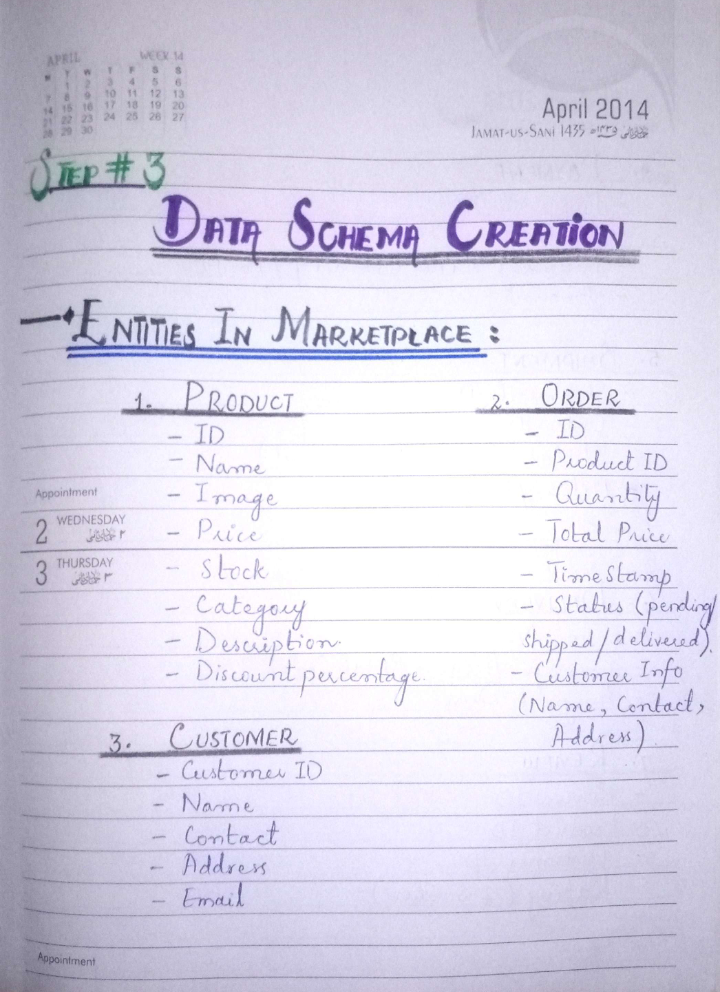 APRIL WEEK 14
M T W T F S S
1 2 3 4 5 6
7 8 9 10 11 12 13
14 15 16 17 18 19 20
21 22 23 24 25 26 27
28 29 30
April 2014
JAMAT-US-SANI 1435
STEP # 3
DATA SCHEMA CREATION
ENTITIES IN MARKETPLACE :
1. PRODUCT
- ID
- Name
- Image
- Price
- Stock
- Category
- Description
- Discount percentage.
2. ORDER
- ID
- Product ID
- Quantity
- Total Price
- TimeStamp
- Status (pending/
shipped/delivered).
- Customer Info
(Name, Contact,
Address)
Appointment
2 WEDNESDAY
3 THURSDAY
3. CUSTOMER
- Customer ID
- Name
- Contact
- Address
- Email
Appointment